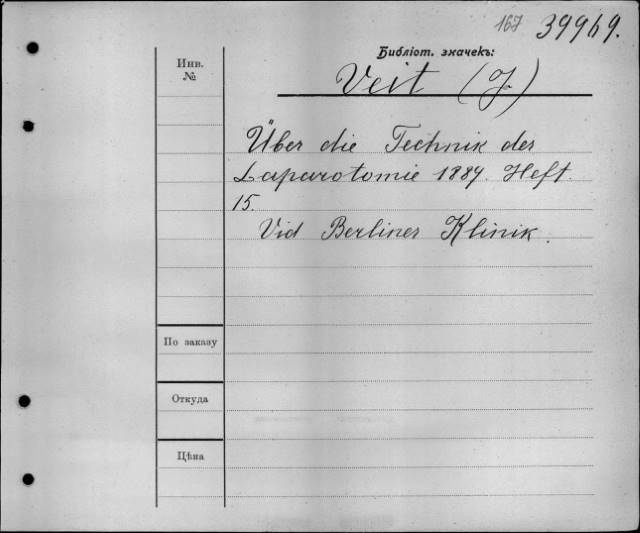 167 39969.
Библіот. значекъ:
Инв.
№
Veit (J.)
Über die Technik des
Laparotomie 1889. Heft.
15.
Vid Berliner Klinik.
По заказу
Откуда
Цѣна